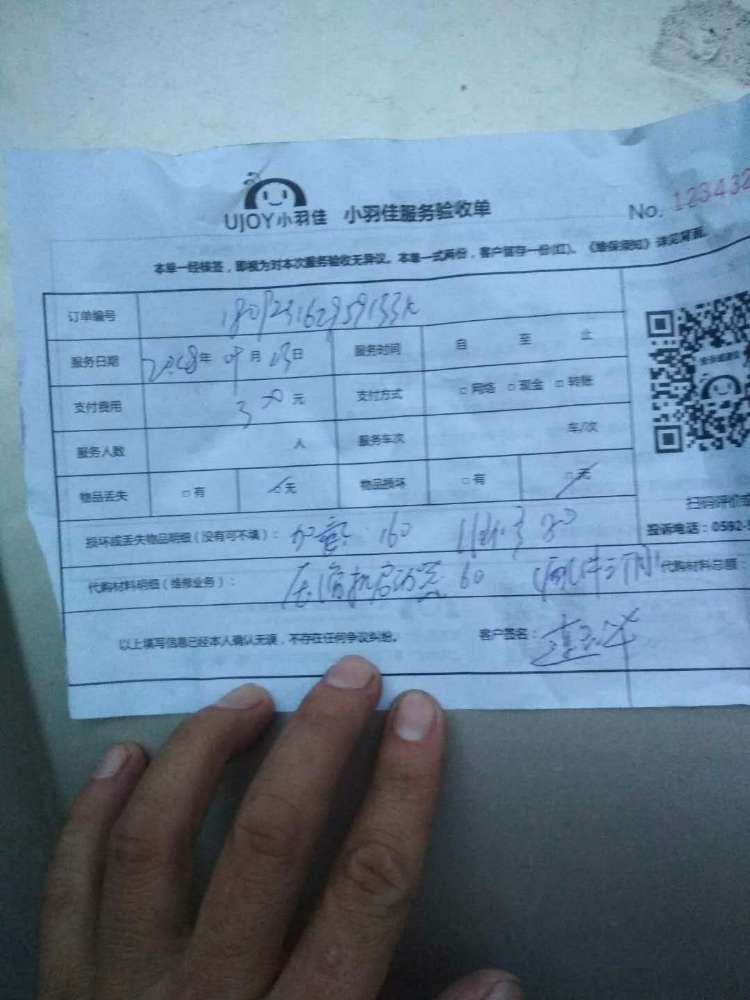 UJOY小羽佳 小羽佳服务验收单 No. 123432
本单一经核签，即视为对本次服务验收无异议。本单一式两份，客户留存一份(红)。《维保须知》详见背面。
订单编号
服务日期 2018年 09月 23日 服务时间 自 至 止
支付费用 300元 支付方式 □网络 □现金 □转账
服务人数 人 服务车次 车/次
物品丢失 □有 □无 物品损坏 □有 □无
扫码评价
损坏或丢失物品明细（没有可不填）： 加氟 160 80
投诉电话：0592-
代购材料明细（维修业务）： 压缩机启动器 60 代购材料总额：
以上填写信息已经本人确认无误，不存在任何争议纠纷。 客户签名：